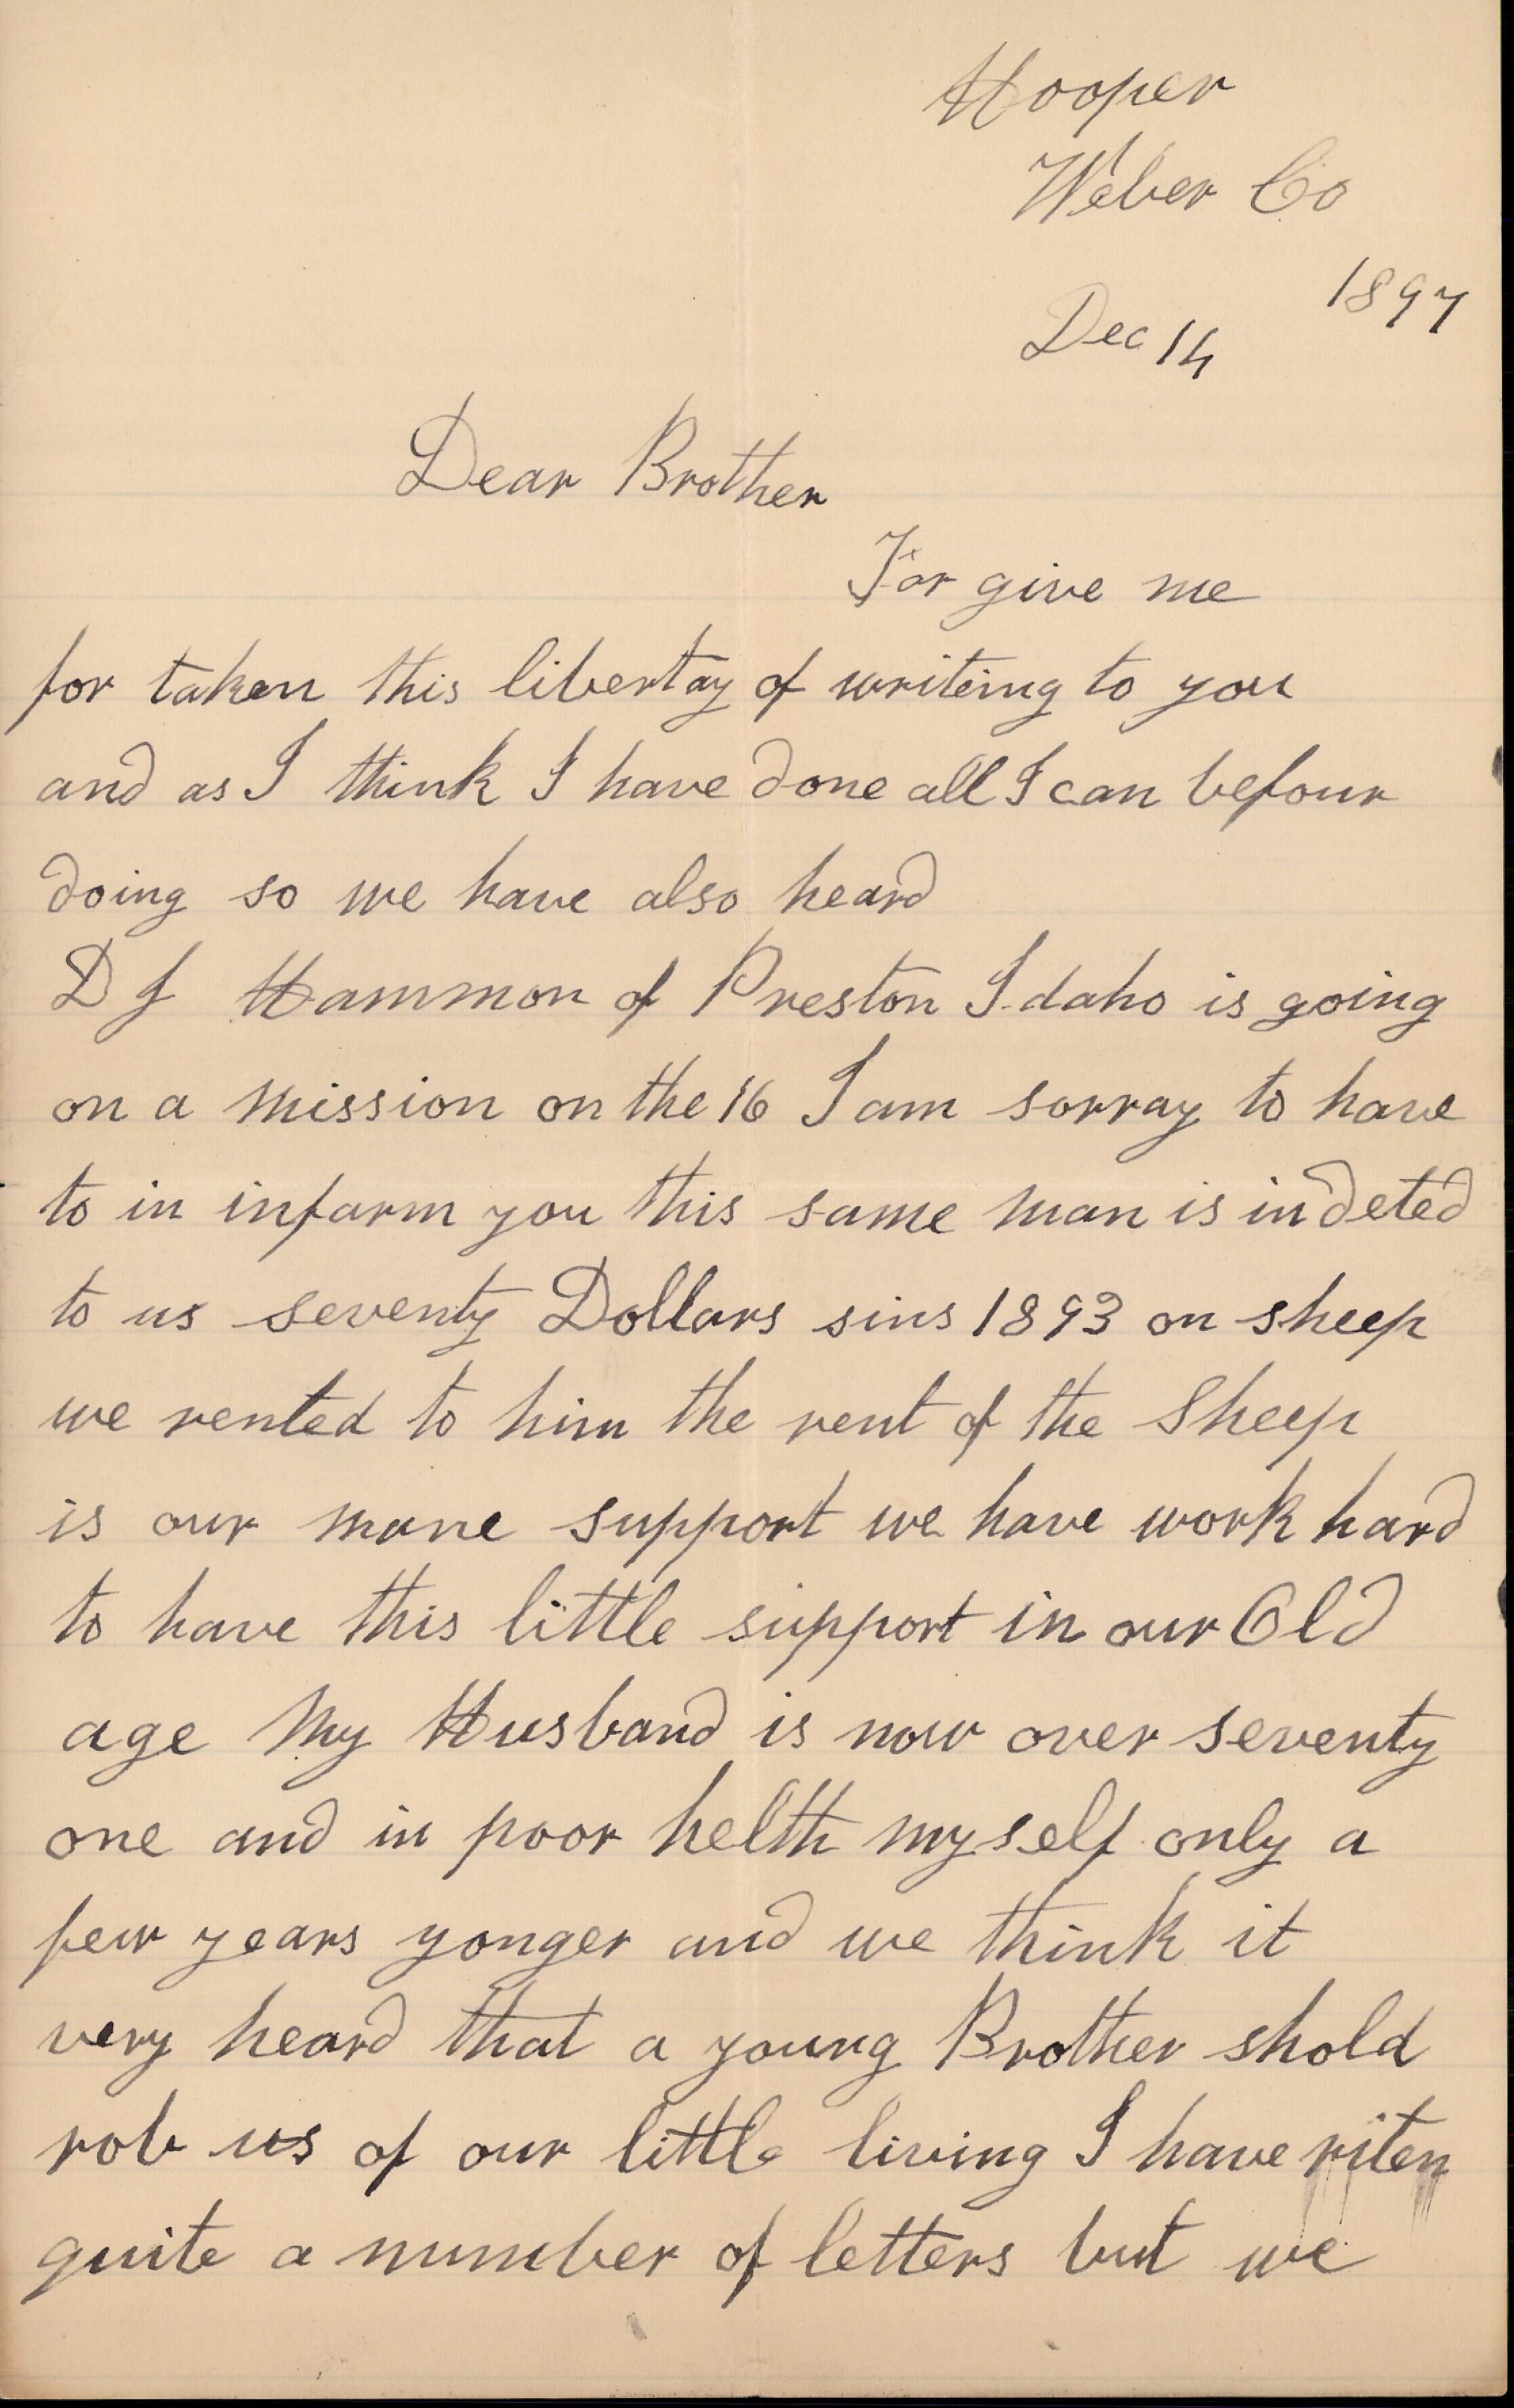 Hooper
Weber Co
1897
Dec 14
Dear Brother
For give me
for taken this libertay of writeing to you
and as I think I have done all I can befour
doing so we have also heard
D J Hammon of Preston Idaho is going
on a mission on the 16 I am sorray to have
to in infarm you this same man is indeted
to us seventy Dollars sins 1893 on sheep
we rented to him the rent of the Sheep
is our mane support we have work hard
to have this little support in our Old
age My Husband is now over seventy
one and in poor helth myself only a
few years yonger and we think it
very heard that a young Brother shold
rob us of our little living I have riten
quite a number of letters but we